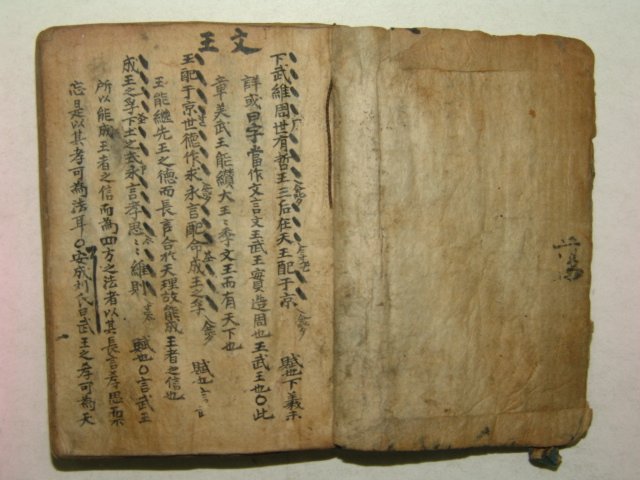 文王
下武維周世有哲王三后在天王配于京 賦也下義未
詳或曰字當作文言文王武王實造周也王武王也〇此
章美武王能纘大王〻季文王而有天下也
王配于京世德作求永言配命成王之孚 賦也言
王能繼先王之德而長言合於天理故能成王者之信也
成王之孚下土之式永言孝思〻〻維則 賦也〇言武王
所以能成王者之信而為四方之法者以其長言孝思而不
忘是以其孝可為法耳〇安成刘氏曰武王之孝可為天